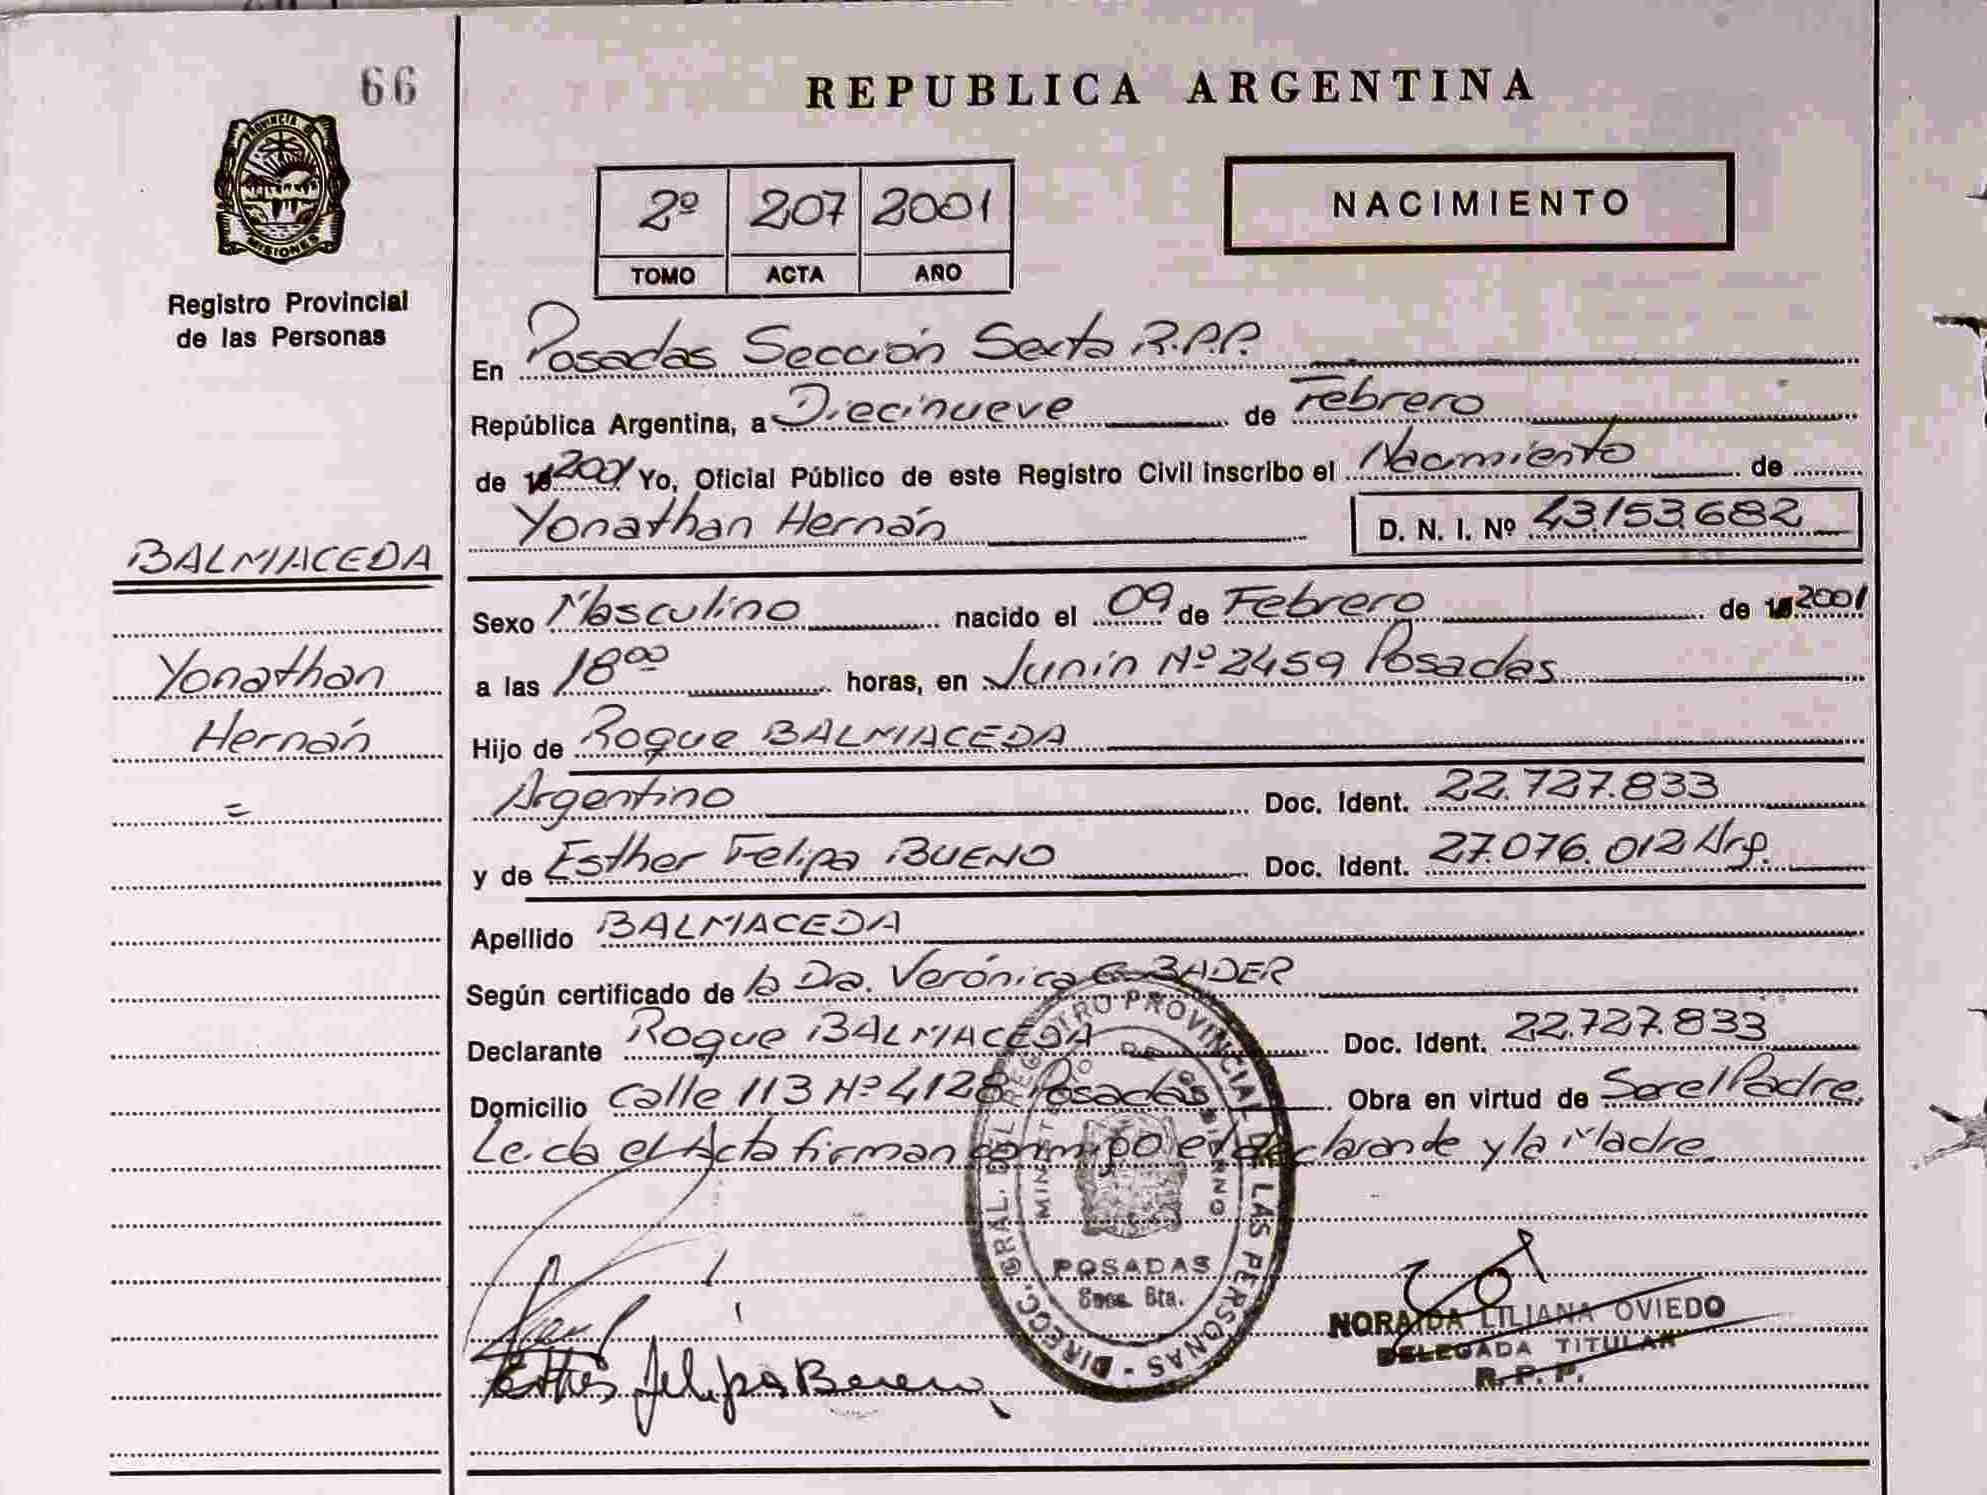 66
REPUBLICA ARGENTINA
PROVINCIA DE
MISIONES
Registro Provincial
de las Personas
2º 207 2001
TOMO ACTA AÑO
NACIMIENTO
En Posadas Sección Sexta R.P.P.
República Argentina, a Diecinueve de Febrero
de 2001 Yo, Oficial Público de este Registro Civil inscribo el Nacimiento de
Yonathan Hernán D. N. I. Nº 43.153.682
BALMACEDA
Yonathan
Hernán
=
Sexo Masculino nacido el 09 de Febrero de 2001
a las 18⁰⁰ horas, en Junín Nº 2459 Posadas
Hijo de Roque BALMACEDA
Argentino Doc. Ident. 22.727.833
y de Esther Felipa BUENO Doc. Ident. 27.076.012 Arg.
Apellido BALMACEDA
Según certificado de la Dra. Verónica G. BADER
Declarante Roque BALMACEDA Doc. Ident. 22.727.833
Domicilio Calle 113 Nº 4128 Posadas Obra en virtud de Ser el Padre.
Leída el Acta firman conmigo el declarante y la Madre.
DIRECC. GRAL. DEL REGISTRO PROVINCIAL DE LAS PERSONAS
MINISTERIO DE GOBIERNO
POSADAS
Secc. 6ta.
NORAIDA LILIANA OVIEDO
DELEGADA TITULAR
R. P. P.
Esther Felipa Bueno